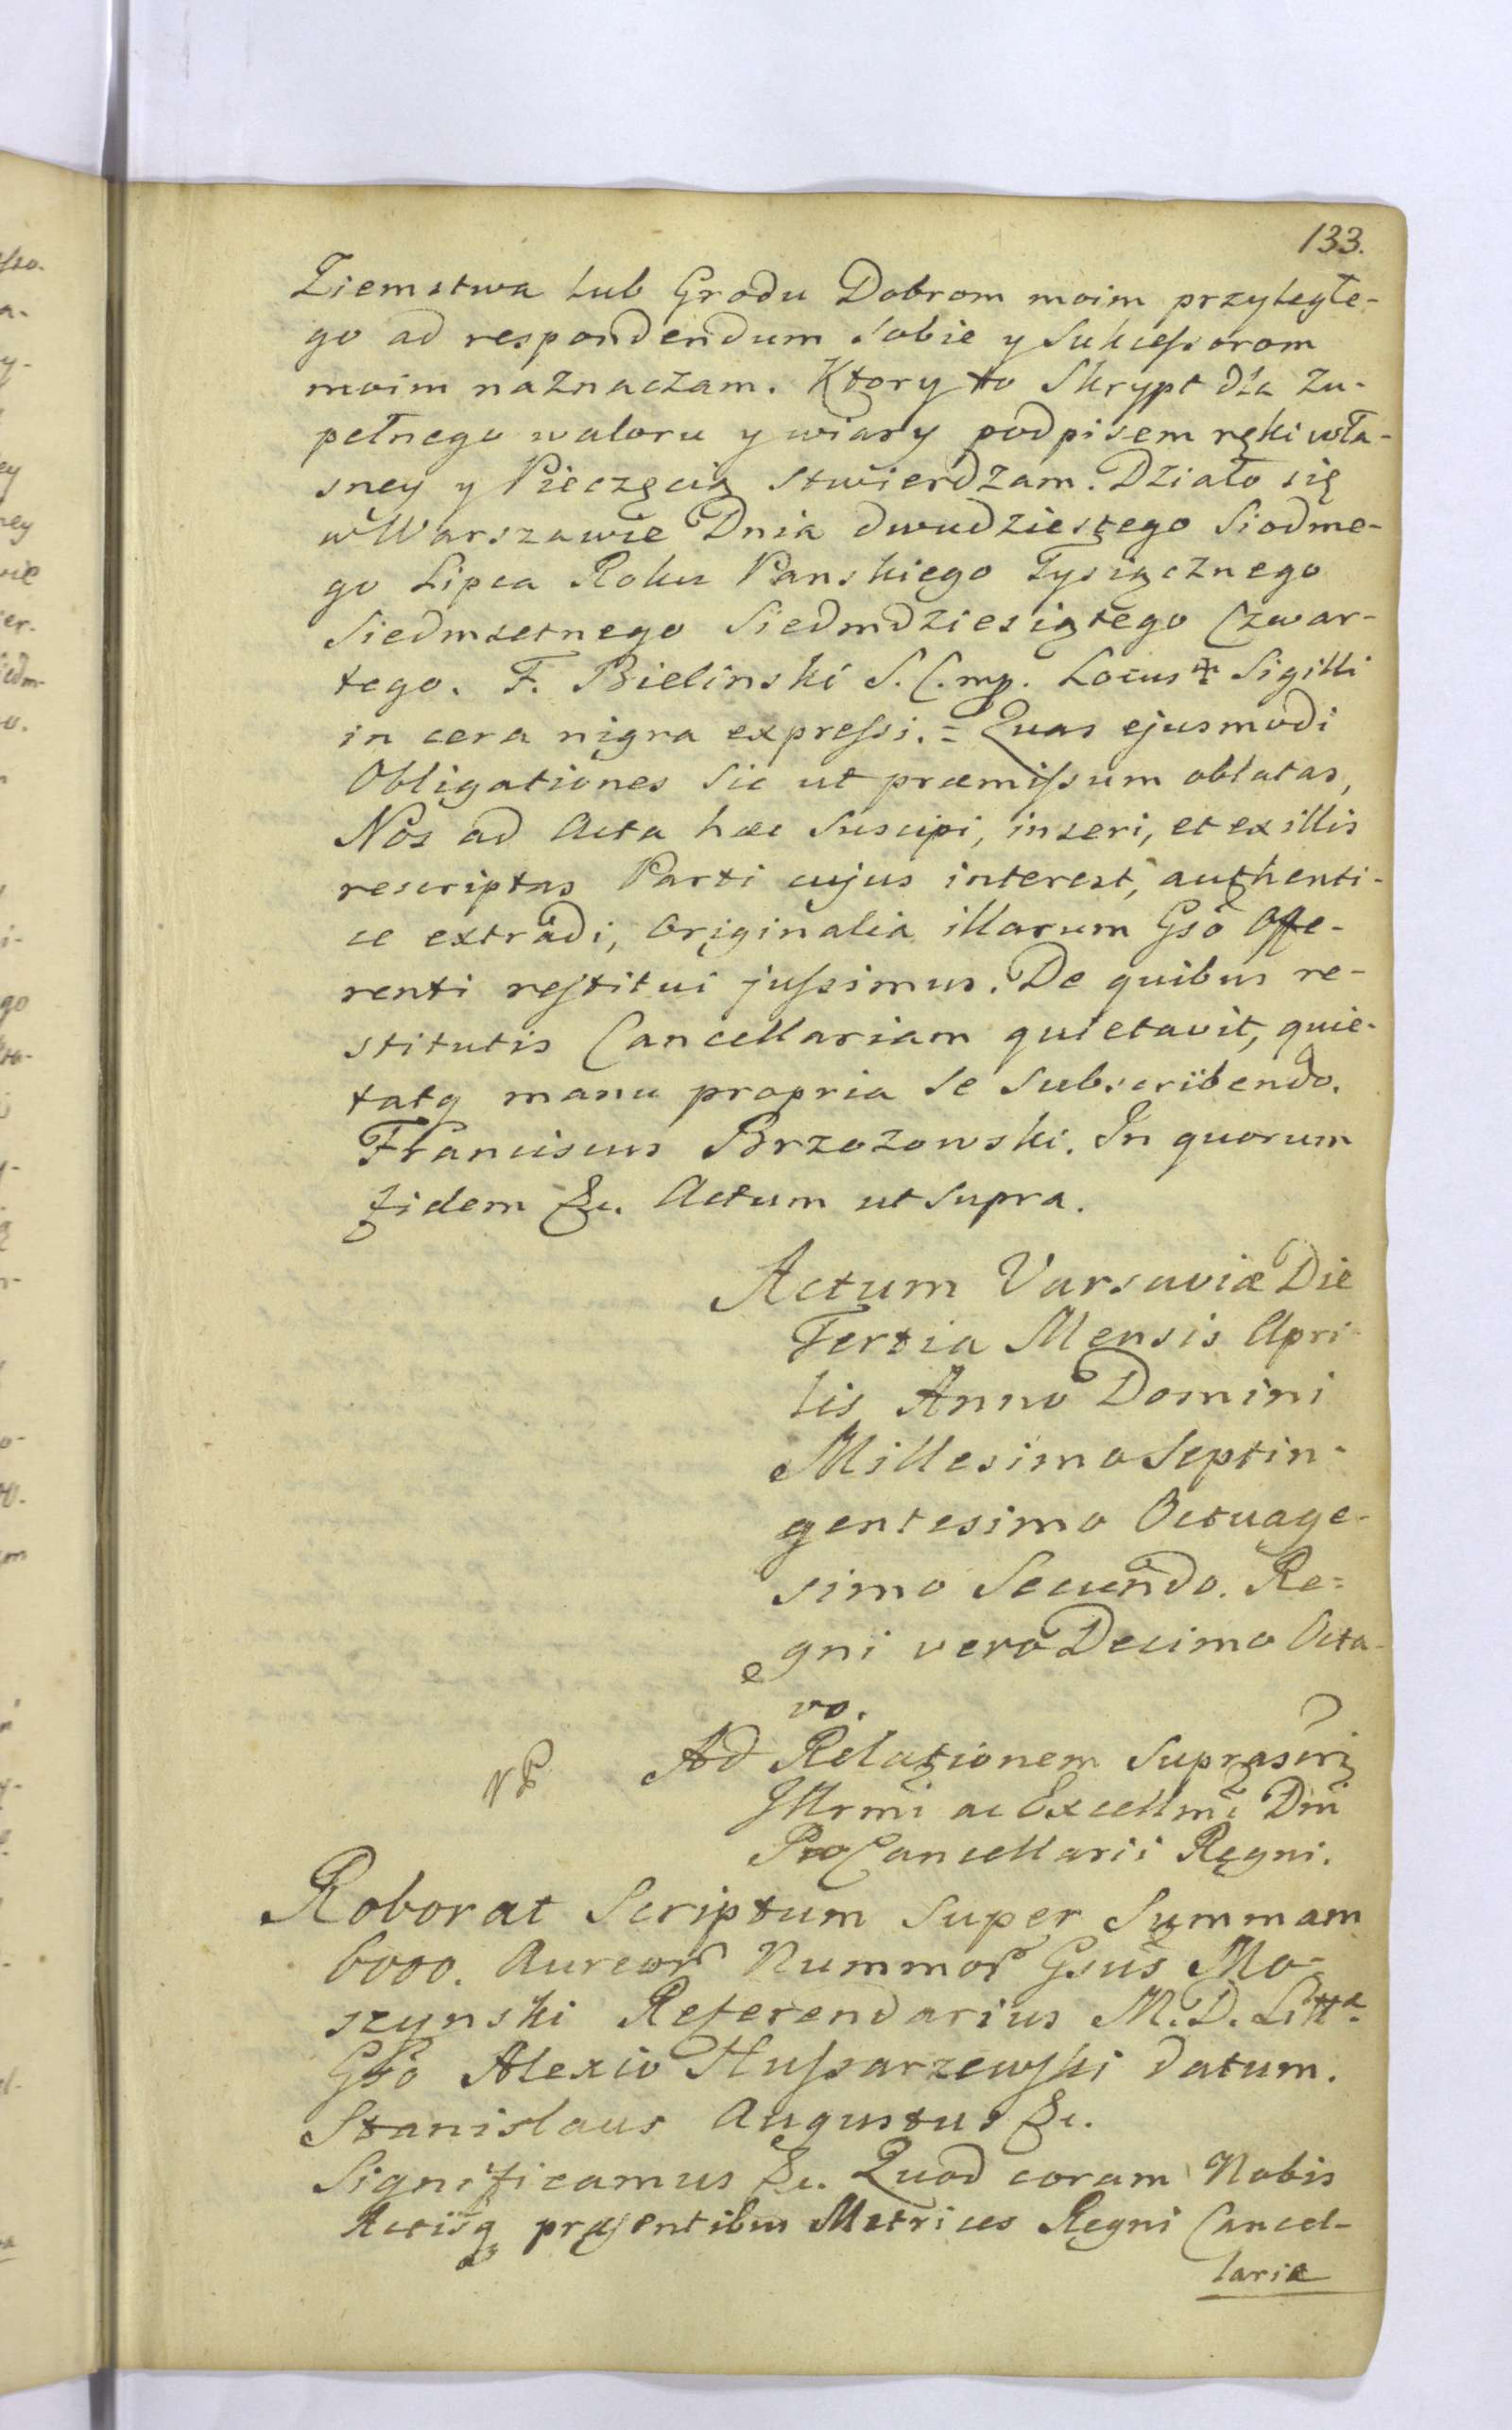 133.
Ziemstwa lub Grodu Dobrom moim przyległe-
go ad respondendum sobie y Sukcessorom
moim naznaczam. Ktory to Skrypt dla zu-
pełnego waloru y wiary podpisem ręki wła-
sney y Pieczęcią stwierdzam. Działo się
w Warszawie Dnia dwudziestego Siodme-
go Lipca Roku Panskiego Tysiącznego
Siedmsetnego Siedmdziesiątego Czwar-
tego. F. Bielinski S. C. mp. Locus Sigilli
in cera nigra expressi. = Quas ejusmodi
Obligationes sic ut præmissum oblatas,
Nos ad Acta hæc suscipi, inseri, et ex illis
rescriptas Parti cujus interest, authenti-
ce extradi, originalia illarum Gso Offe-
renti restitui jussimus. De quibus re-
stitutis Cancellariam quietavit, quie-
tatq manu propria se subscribendo.
Franciscus Brzozowski. In quorum
fidem &c. Actum ut supra.
Actum Varsaviæ Die
Tertia Mensis Apri-
lis Anno Domini
Millesimo Septin-
gentesimo Octuage-
simo Secundo. Re=
gni vero Decimo Octa-
vo.
Ad Relationem suprascri
Illrmi ac Excellmi Dni
ProCancellarii Regni.
Roborat Scriptum super Summam
6000. Aureor Nummor Gsus Mo-
szynski Referendarius M. D. Litt.
Gso Alexio Hussarzewski datum.
Stanislaus Augustus &c.
Significamus &c. Quod coram Nobis
Actisq præsentibus Metrices Regni Cancel-
lariæ